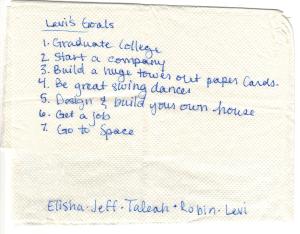 Levi's Goals
1. Graduate College
2. Start a company
3. Build a huge tower out paper Cards.
4. Be great swing dancer
5. Design & build your own house
6. Get a job
7. Go to Space
Elisha · Jeff · Taleah · Robin · Levi